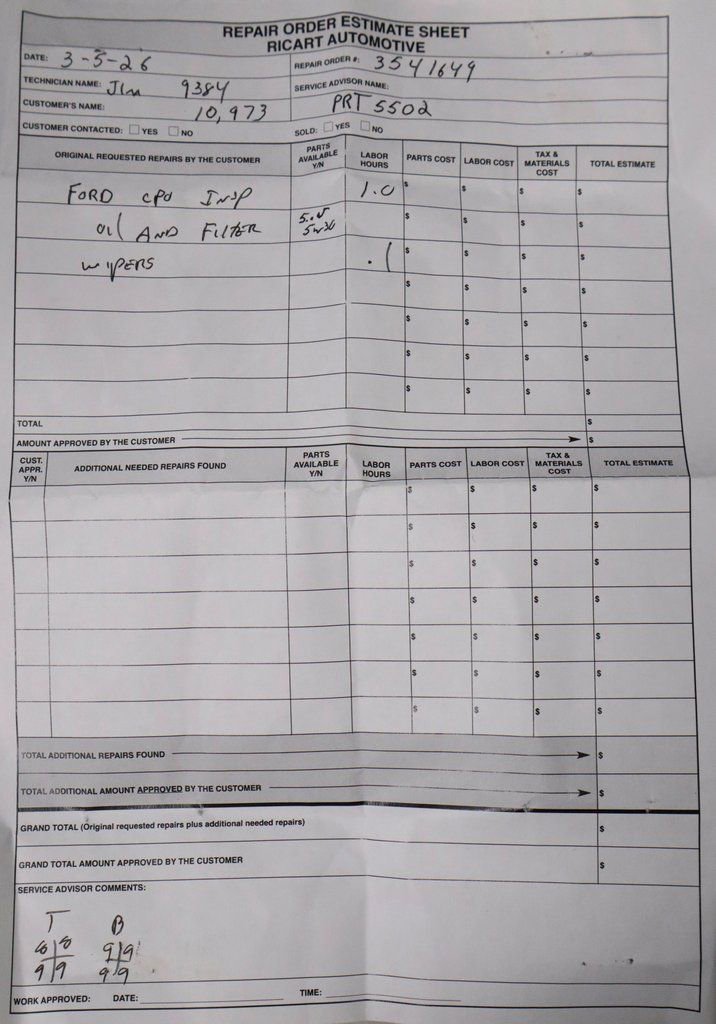 REPAIR ORDER ESTIMATE SHEET
RICART AUTOMOTIVE
DATE: 3-5-26
REPAIR ORDER #: 3541649
TECHNICIAN NAME: Jim 9384
SERVICE ADVISOR NAME:
CUSTOMER'S NAME: 10,973
PRT 5502
CUSTOMER CONTACTED: YES NO
SOLD: YES NO
ORIGINAL REQUESTED REPAIRS BY THE CUSTOMER PARTS AVAILABLE Y/N LABOR HOURS PARTS COST LABOR COST TAX & MATERIALS COST TOTAL ESTIMATE
FORD CPO INSP 1.0 $ $ $ $
oil AND FILTER 5w30 $ $ $ $
wipERS .1 $ $ $ $
$ $ $ $
$ $ $ $
$ $ $ $
$ $ $ $
TOTAL $
AMOUNT APPROVED BY THE CUSTOMER $
CUST. APPR. Y/N ADDITIONAL NEEDED REPAIRS FOUND PARTS AVAILABLE Y/N LABOR HOURS PARTS COST LABOR COST TAX & MATERIALS COST TOTAL ESTIMATE
$ $ $ $
$ $ $ $
$ $ $ $
$ $ $ $
$ $ $ $
$ $ $ $
$ $ $ $
TOTAL ADDITIONAL REPAIRS FOUND $
TOTAL ADDITIONAL AMOUNT APPROVED BY THE CUSTOMER $
GRAND TOTAL (Original requested repairs plus additional needed repairs) $
GRAND TOTAL AMOUNT APPROVED BY THE CUSTOMER $
SERVICE ADVISOR COMMENTS:
T B
8 8 9 9
9 9 9 9
WORK APPROVED: DATE: TIME: